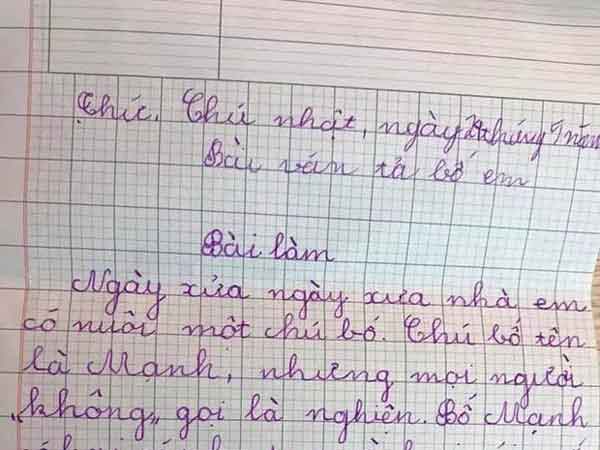 Thứ, Chủ nhật, ngày 24 tháng 9 năm
Bài văn tả bố em
Bài làm
Ngày xửa ngày xưa nhà em
có nuôi một chú bố. Chú bố tên
là Mạnh, nhưng mọi người
„không„ gọi là nghiện. Bố Mạnh